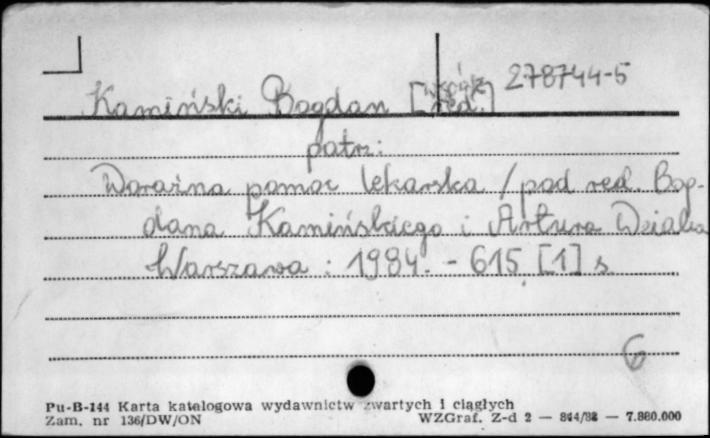 278744-5
Kamiński Bogdan [red.]
patrz:
Doraźna pomoc lekarska / pod red. Bog-
dana Kamińskiego i Artura Dziaka
Warszawa : 1984. - 615, [1] s
6
Pu-B-144 Karta katalogowa wydawnictw zwartych i ciągłych
Zam. nr 136/DW/ON WZGraf. Z-d 2 — 844/82 — 7.880.000